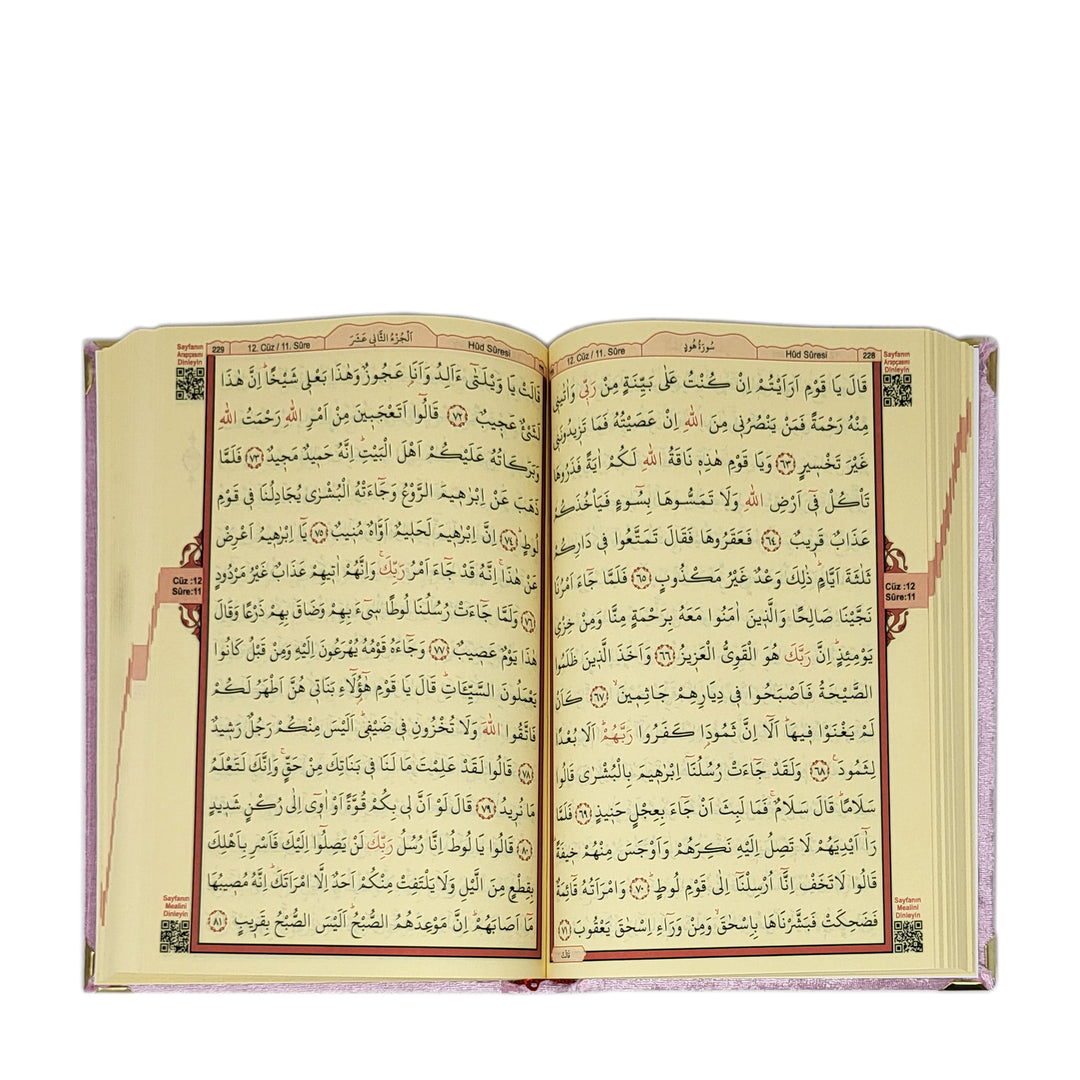 228
Hûd Sûresi
سُورَةُ هُودٍ
12. Cüz / 11. Sûre
Sayfanın
Arapçasını
Dinleyin
قَالَ يَا قَوْمِ اَرَاَيْتُمْ اِنْ كُنْتُ عَلٰى بَيِّنَةٍ مِنْ رَبّ۪ي وَاٰتٰين۪ي
مِنْهُ رَحْمَةً فَمَنْ يَنْصُرُن۪ي مِنَ اللّٰهِ اِنْ عَصَيْتُهُ فَمَا تَز۪يدُونَن۪ي
غَيْرَ تَخْس۪يرٍ ﴿٦٣﴾ وَيَا قَوْمِ هٰذِه۪ نَاقَةُ اللّٰهِ لَكُمْ اٰيَةً فَذَرُوهَا
تَأْكُلْ ف۪ٓي اَرْضِ اللّٰهِ وَلَا تَمَسُّوهَا بِسُٓوءٍ فَيَأْخُذَكُمْ
عَذَابٌ قَر۪يبٌ ﴿٦٤﴾ فَعَقَرُوهَا فَقَالَ تَمَتَّعُوا ف۪ي دَارِكُمْ
ثَلٰثَةَ اَيَّامٍۜ ذٰلِكَ وَعْدٌ غَيْرُ مَكْذُوبٍ ﴿٦٥﴾ فَلَمَّا جَٓاءَ اَمْرُنَا
نَجَّيْنَا صَالِحًا وَالَّذ۪ينَ اٰمَنُوا مَعَهُ بِرَحْمَةٍ مِنَّا وَمِنْ خِزْيِ
يَوْمِئِذٍۜ اِنَّ رَبَّكَ هُوَ الْقَوِيُّ الْعَز۪يزُ ﴿٦٦﴾ وَاَخَذَ الَّذ۪ينَ ظَلَمُوا
الصَّيْحَةُ فَاَصْبَحُوا ف۪ي دِيَارِهِمْ جَاثِم۪ينَۙ ﴿٦٧﴾ كَاَنْ
لَمْ يَغْنَوْا ف۪يهَاۜ اَلَٓا اِنَّ ثَمُودَا۬ كَفَرُوا رَبَّهُمْۜ اَلَا بُعْدًا
لِثَمُودَ۟ ﴿٦٨﴾ وَلَقَدْ جَٓاءَتْ رُسُلُنَٓا اِبْرٰه۪يمَ بِالْبُشْرٰى قَالُوا
سَلَامًاۜ قَالَ سَلَامٌ فَمَا لَبِثَ اَنْ جَٓاءَ بِعِجْلٍ حَن۪يذٍ ﴿٦٩﴾ فَلَمَّا
رَآٰ اَيْدِيَهُمْ لَا تَصِلُ اِلَيْهِ نَكِرَهُمْ وَاَوْجَسَ مِنْهُمْ خ۪يفَةًۜ
قَالُوا لَا تَخَفْ اِنَّٓا اُرْسِلْنَٓا اِلٰى قَوْمِ لُوطٍۜ ﴿٧٠﴾ وَامْرَاَتُهُ قَٓائِمَةٌ
فَضَحِكَتْ فَبَشَّرْنَاهَا بِاِسْحٰقَۙ وَمِنْ وَرَٓاءِ اِسْحٰقَ يَعْقُوبَ ﴿٧١﴾
قَالَتْ
Cüz :12
Sûre:11
Sayfanın
Mealini
Dinleyin
Hûd Sûresi
اَلْجُزْءُ الثَّانِي عَشَرَ
12. Cüz / 11. Sûre
229
Sayfanın
Arapçasını
Dinleyin
قَالَتْ يَا وَيْلَتٰٓى ءَاَلِدُ وَاَنَا۬ عَجُوزٌ وَهٰذَا بَعْل۪ي شَيْخًاۜ اِنَّ هٰذَا
لَشَيْءٌ عَج۪يبٌ ﴿٧٢﴾ قَالُٓوا اَتَعْجَب۪ينَ مِنْ اَمْرِ اللّٰهِ رَحْمَتُ اللّٰهِ
وَبَرَكَاتُهُ عَلَيْكُمْ اَهْلَ الْبَيْتِۜ اِنَّهُ حَم۪يدٌ مَج۪يدٌ ﴿٧٣﴾ فَلَمَّا
ذَهَبَ عَنْ اِبْرٰه۪يمَ الرَّوْعُ وَجَٓاءَتْهُ الْبُشْرٰى يُجَادِلُنَا ف۪ي قَوْمِ
لُوطٍۜ ﴿٧٤﴾ اِنَّ اِبْرٰه۪يمَ لَحَل۪يمٌ اَوَّاهٌ مُن۪يبٌ ﴿٧٥﴾ يَٓا اِبْرٰه۪يمُ اَعْرِضْ
عَنْ هٰذَاۚ اِنَّهُ قَدْ جَٓاءَ اَمْرُ رَبِّكَۚ وَاِنَّهُمْ اٰت۪يهِمْ عَذَابٌ غَيْرُ مَرْدُودٍ
﴿٧٦﴾ وَلَمَّا جَٓاءَتْ رُسُلُنَا لُوطًا س۪ٓيءَ بِهِمْ وَضَاقَ بِهِمْ ذَرْعًا وَقَالَ
هٰذَا يَوْمٌ عَص۪يبٌ ﴿٧٧﴾ وَجَٓاءَهُ قَوْمُهُ يُهْرَعُونَ اِلَيْهِ وَمِنْ قَبْلُ كَانُوا
يَعْمَلُونَ السَّيِّـَٔاتِۜ قَالَ يَا قَوْمِ هٰٓؤُ۬لَٓاءِ بَنَات۪ي هُنَّ اَطْهَرُ لَكُمْ
فَاتَّقُوا اللّٰهَ وَلَا تُخْزُونِ ف۪ي ضَيْف۪يۜ اَلَيْسَ مِنْكُمْ رَجُلٌ رَش۪يدٌ
﴿٧٨﴾ قَالُوا لَقَدْ عَلِمْتَ مَا لَنَا ف۪ي بَنَاتِكَ مِنْ حَقٍّۚ وَاِنَّكَ لَتَعْلَمُ
مَا نُر۪يدُ ﴿٧٩﴾ قَالَ لَوْ اَنَّ ل۪ي بِكُمْ قُوَّةً اَوْ اٰو۪ٓي اِلٰى رُكْنٍ شَد۪يدٍ
﴿٨٠﴾ قَالُوا يَا لُوطُ اِنَّا رُسُلُ رَبِّكَ لَنْ يَصِلُٓوا اِلَيْكَ فَاَسْرِ بِاَهْلِكَ
بِقِطْعٍ مِنَ الَّيْلِ وَلَا يَلْتَفِتْ مِنْكُمْ اَحَدٌ اِلَّا امْرَاَتَكَۜ اِنَّهُ مُص۪يبُهَا
مَٓا اَصَابَهُمْۜ اِنَّ مَوْعِدَهُمُ الصُّبْحُۜ اَلَيْسَ الصُّبْحُ بِقَر۪يبٍ ﴿٨١﴾
Cüz :12
Sûre:11
Sayfanın
Mealini
Dinleyin